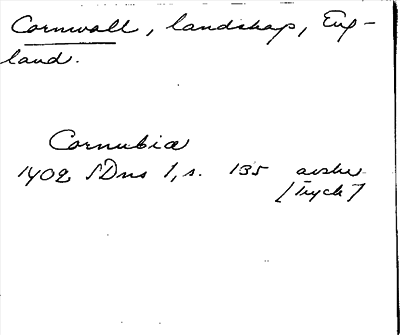 Cornwall, landskap, Eng-
land.
Cornubia
1402 SDns 1, s. 135 avskr
[Tryck]